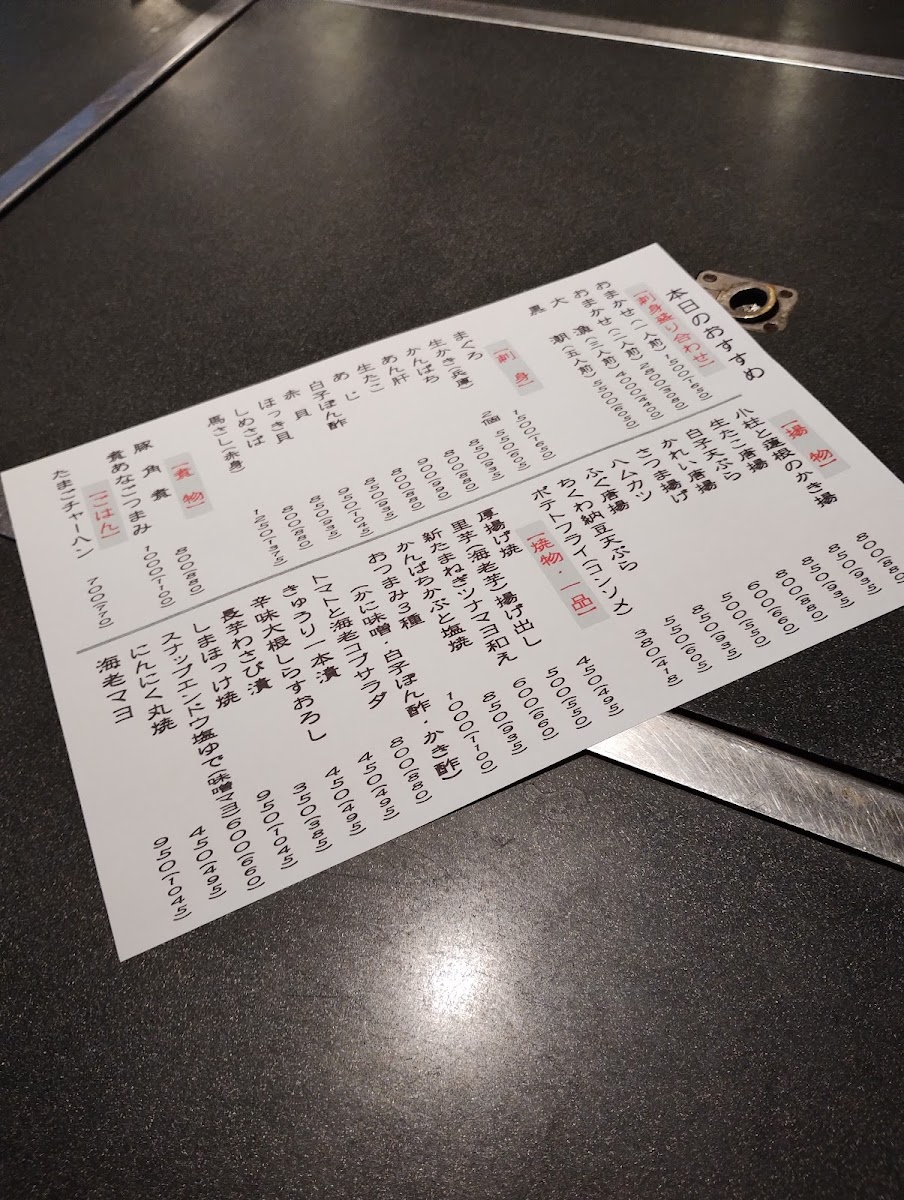 本日のおすすめ
[刺身盛り合わせ]
おまかせ(一人前) 1500(1650)
おまかせ(二人前) 2800(3080)
大漁(三人前) 4000(4400)
黒潮(五人前) 5500(6050)
[刺身]
まぐろ 1500(1650)
生かき(兵庫) 2個 550(605)
かんぱち 850(935)
あん肝 800(880)
生たこ 850(935)
あじ 800(880)
白子ぽん酢 900(990)
赤貝 950(1045)
ほっき貝 850(935)
しめさば 800(880)
馬さし(赤身) 1250(1375)
[煮物]
豚角煮 800(880)
煮あなごつまみ 1000(1100)
[ごはん]
たまごチャーハン 700(770)
[揚物]
小柱と蓮根のかき揚 800(880)
生たこ唐揚 850(935)
白子天ぷら 850(935)
かれい唐揚 800(880)
さつま揚げ 500(550)
ハムカツ 600(660)
ふぐ唐揚 850(935)
ちくわ納豆天ぷら 550(605)
ポテトフライ(コンソメ) 380(418)
[焼物・一品]
厚揚げ焼 450(495)
里芋(海老芋)揚げ出し 500(550)
新たまねぎツナマヨ和え 600(660)
かんぱちかぶと塩焼 850(935)
おつまみ3種 1000(1100)
(かに味噌・白子ぽん酢・かき酢)
トマトと海老コブサラダ 800(880)
きゅうり一本漬 450(495)
辛味大根しらすおろし 450(495)
長芋わさび漬 350(385)
しまほっけ焼 950(1045)
スナップエンドウ塩ゆで(味噌マヨ) 600(660)
にんにく丸焼 450(495)
海老マヨ 950(1045)